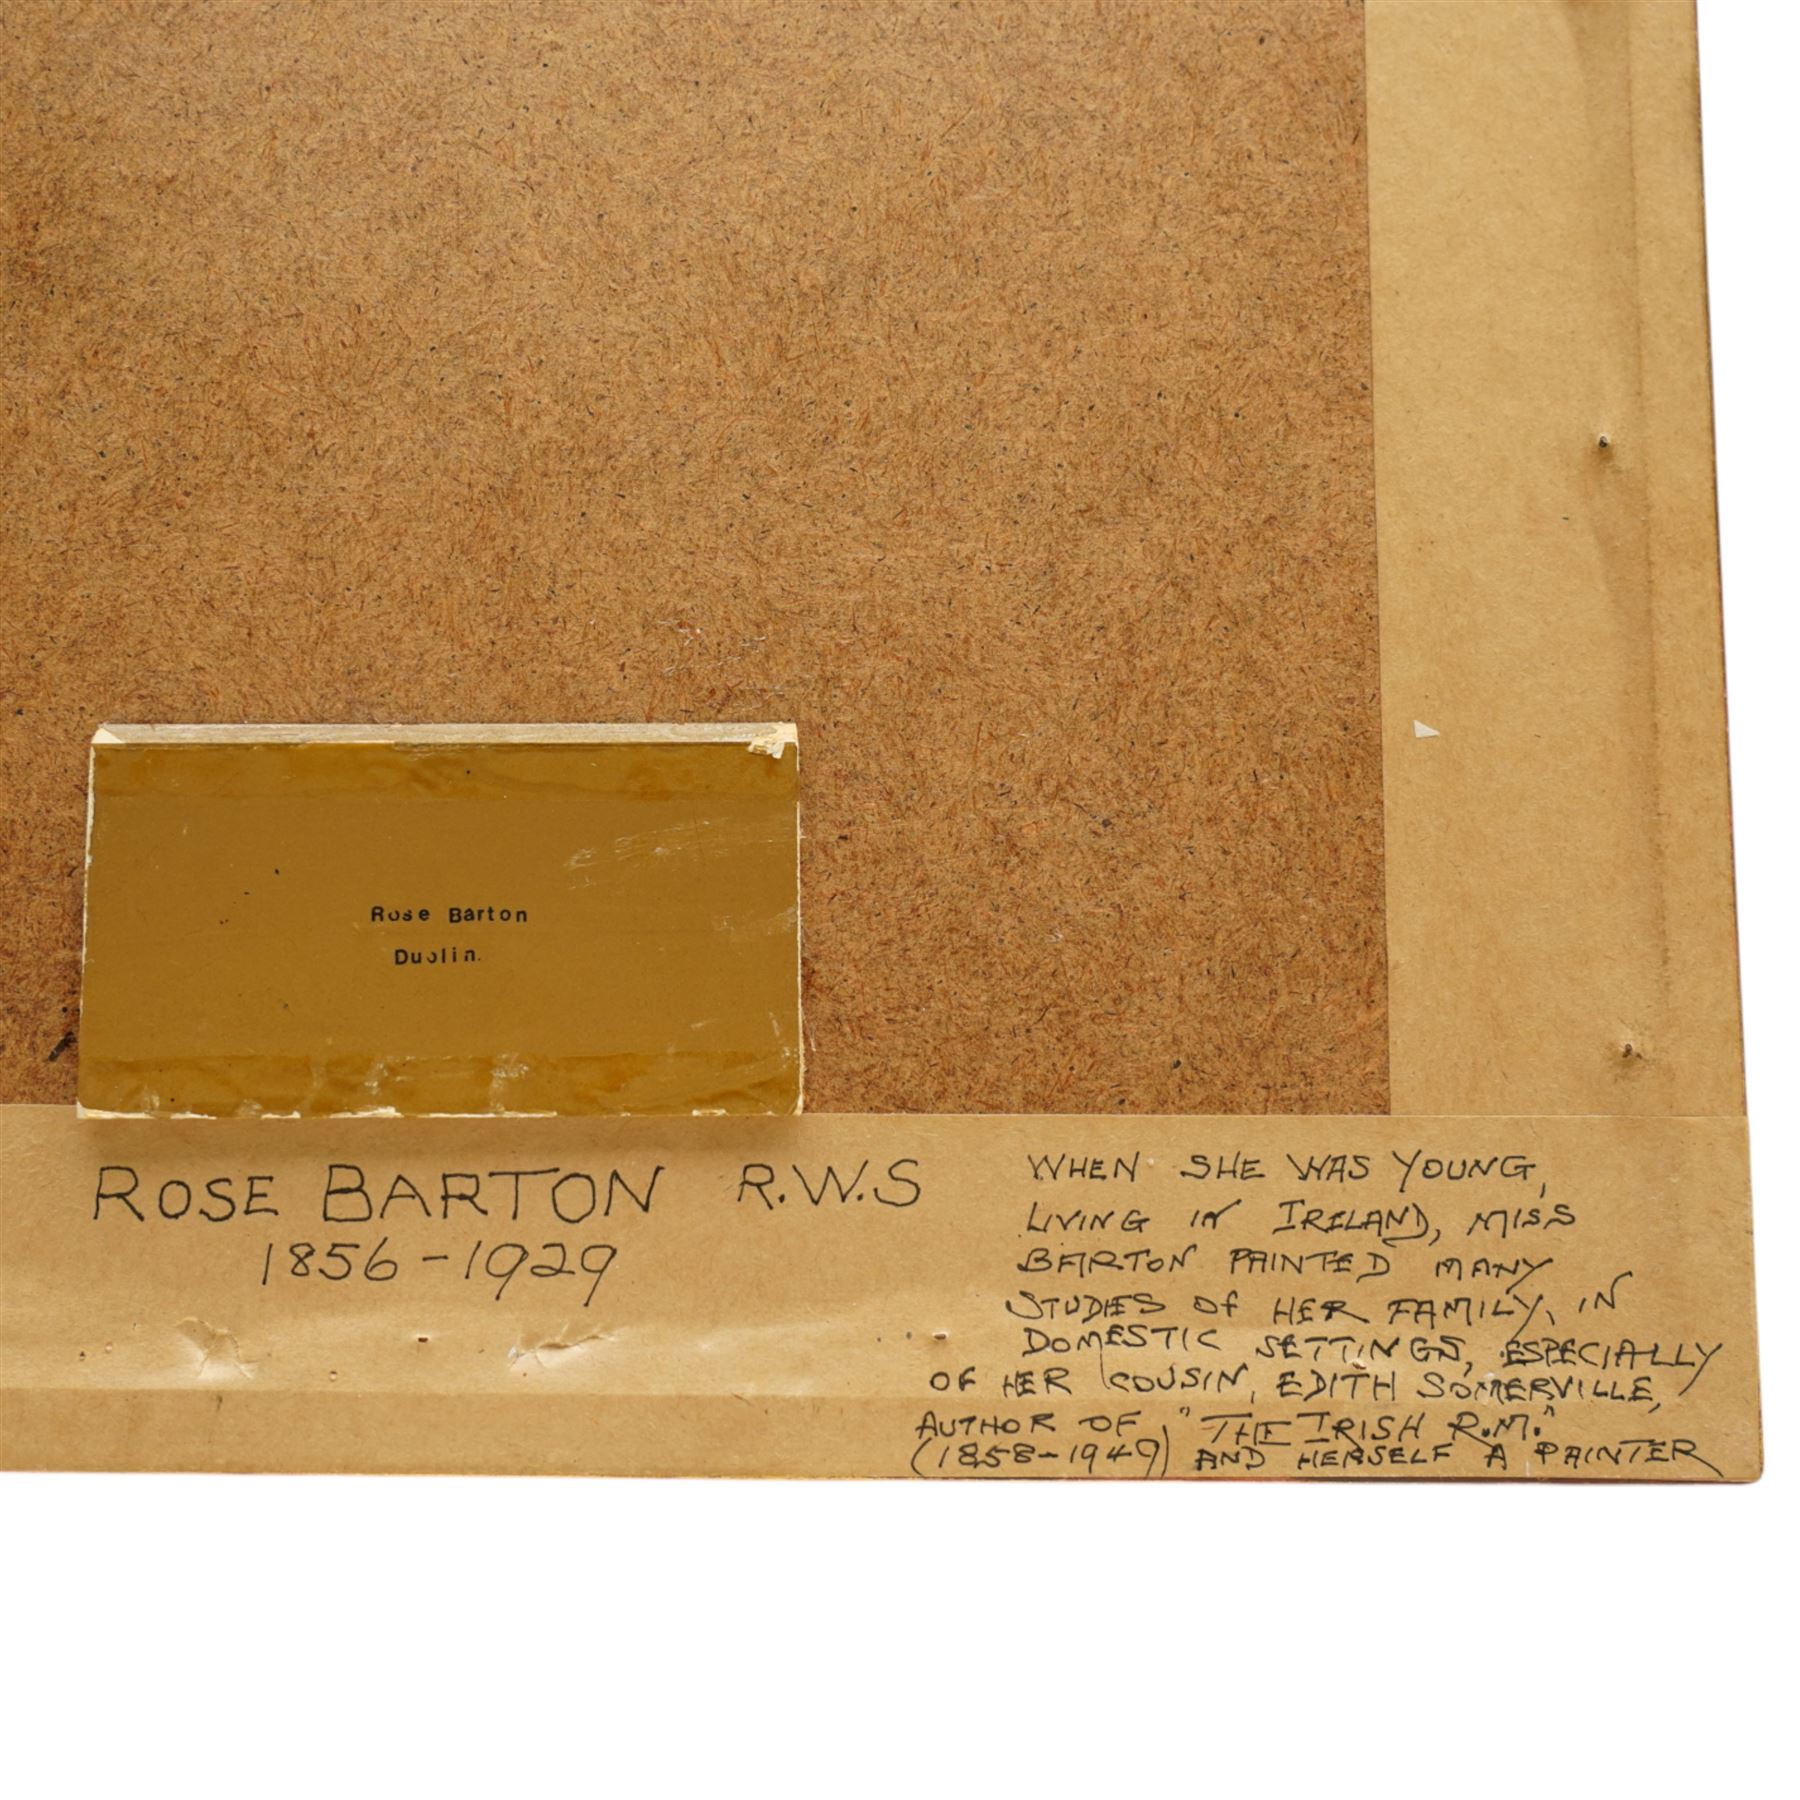 Rose Barton
Dublin.
ROSE BARTON R.W.S
1856-1929
WHEN SHE WAS YOUNG,
LIVING IN IRELAND, MISS
BARTON PAINTED MANY
STUDIES OF HER FAMILY, IN
DOMESTIC SETTINGS, ESPECIALLY
OF HER COUSIN, EDITH SOMERVILLE,
AUTHOR OF "THE IRISH R.M."
(1858-1949) AND HERSELF A PAINTER